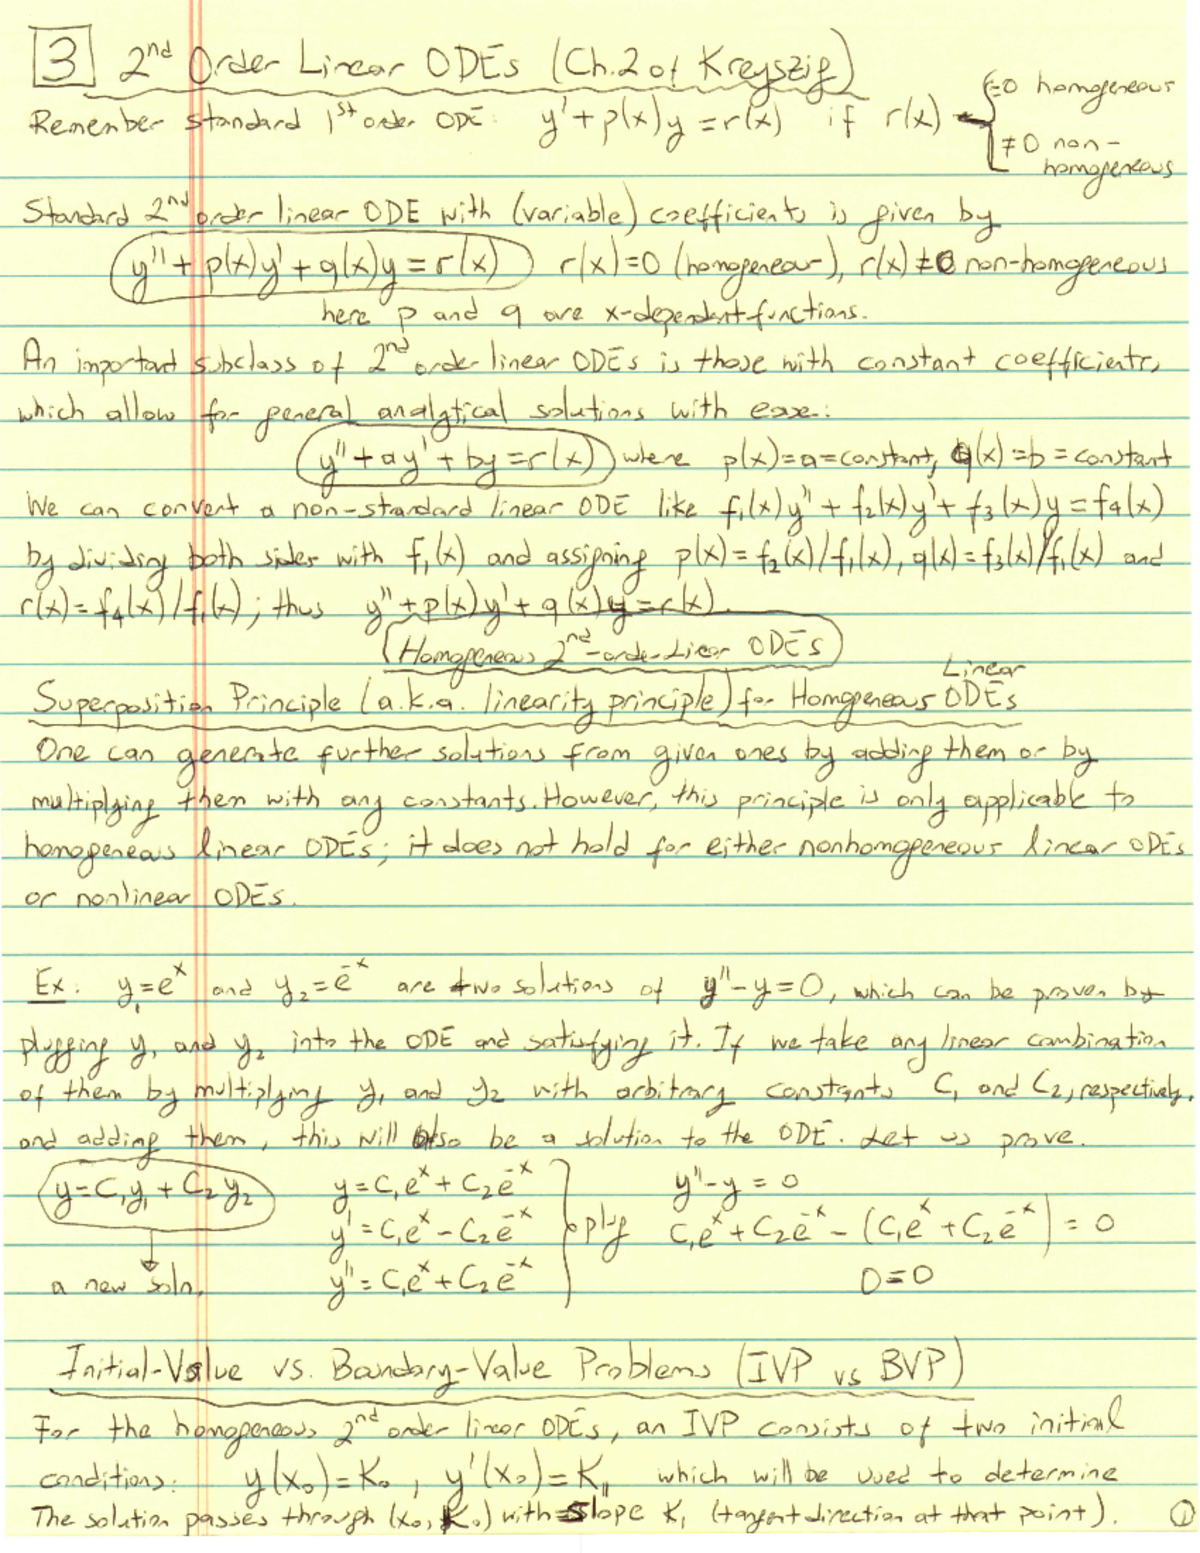 3 2nd Order Linear ODEs (Ch.2 of Kreyszig)
Remember standard 1st order ODE: y' + p(x)y = r(x) if r(x) { =0 homogeneous
≠0 non-homogeneous
Standard 2nd order linear ODE with (variable) coefficients is given by
y'' + p(x)y' + q(x)y = r(x) r(x)=0 (homogeneous), r(x)≠0 non-homogeneous
here p and q are x-dependent functions.
An important subclass of 2nd order linear ODEs is those with constant coefficients,
which allow for general analytical solutions with ease:
y'' + ay' + by = r(x) where p(x)=a=constant, q(x)=b=constant
We can convert a non-standard linear ODE like f₁(x)y'' + f₂(x)y' + f₃(x)y = f₄(x)
by dividing both sides with f₁(x) and assigning p(x)=f₂(x)/f₁(x), q(x)=f₃(x)/f₁(x) and
r(x)=f₄(x)/f₁(x); thus y'' + p(x)y' + q(x)y = r(x).
Homogeneous 2nd-order Linear ODEs
Superposition Principle (a.k.a. linearity principle) for Homogeneous Linear ODEs
One can generate further solutions from given ones by adding them or by
multiplying them with any constants. However, this principle is only applicable to
homogeneous linear ODEs; it does not hold for either nonhomogeneous linear ODEs
or nonlinear ODEs.
Ex: y₁=eˣ and y₂=e⁻ˣ are two solutions of y''-y=0, which can be proven by
plugging y₁ and y₂ into the ODE and satisfying it. If we take any linear combination
of them by multiplying y₁ and y₂ with arbitrary constants C₁ and C₂, respectively,
and adding them, this will also be a solution to the ODE. Let us prove.
y=C₁y₁ + C₂y₂ y=C₁eˣ + C₂e⁻ˣ y''-y = 0
y'=C₁eˣ - C₂e⁻ˣ } plug C₁eˣ + C₂e⁻ˣ - (C₁eˣ + C₂e⁻ˣ) = 0
a new soln. y''=C₁eˣ + C₂e⁻ˣ 0=0
Initial-Value vs. Boundary-Value Problems (IVP vs BVP)
For the homogeneous 2nd order linear ODEs, an IVP consists of two initial
conditions: y(x₀)=K₀, y'(x₀)=K₁, which will be used to determine
The solution passes through (x₀, K₀) with slope K₁ (tangent direction at that point). 1